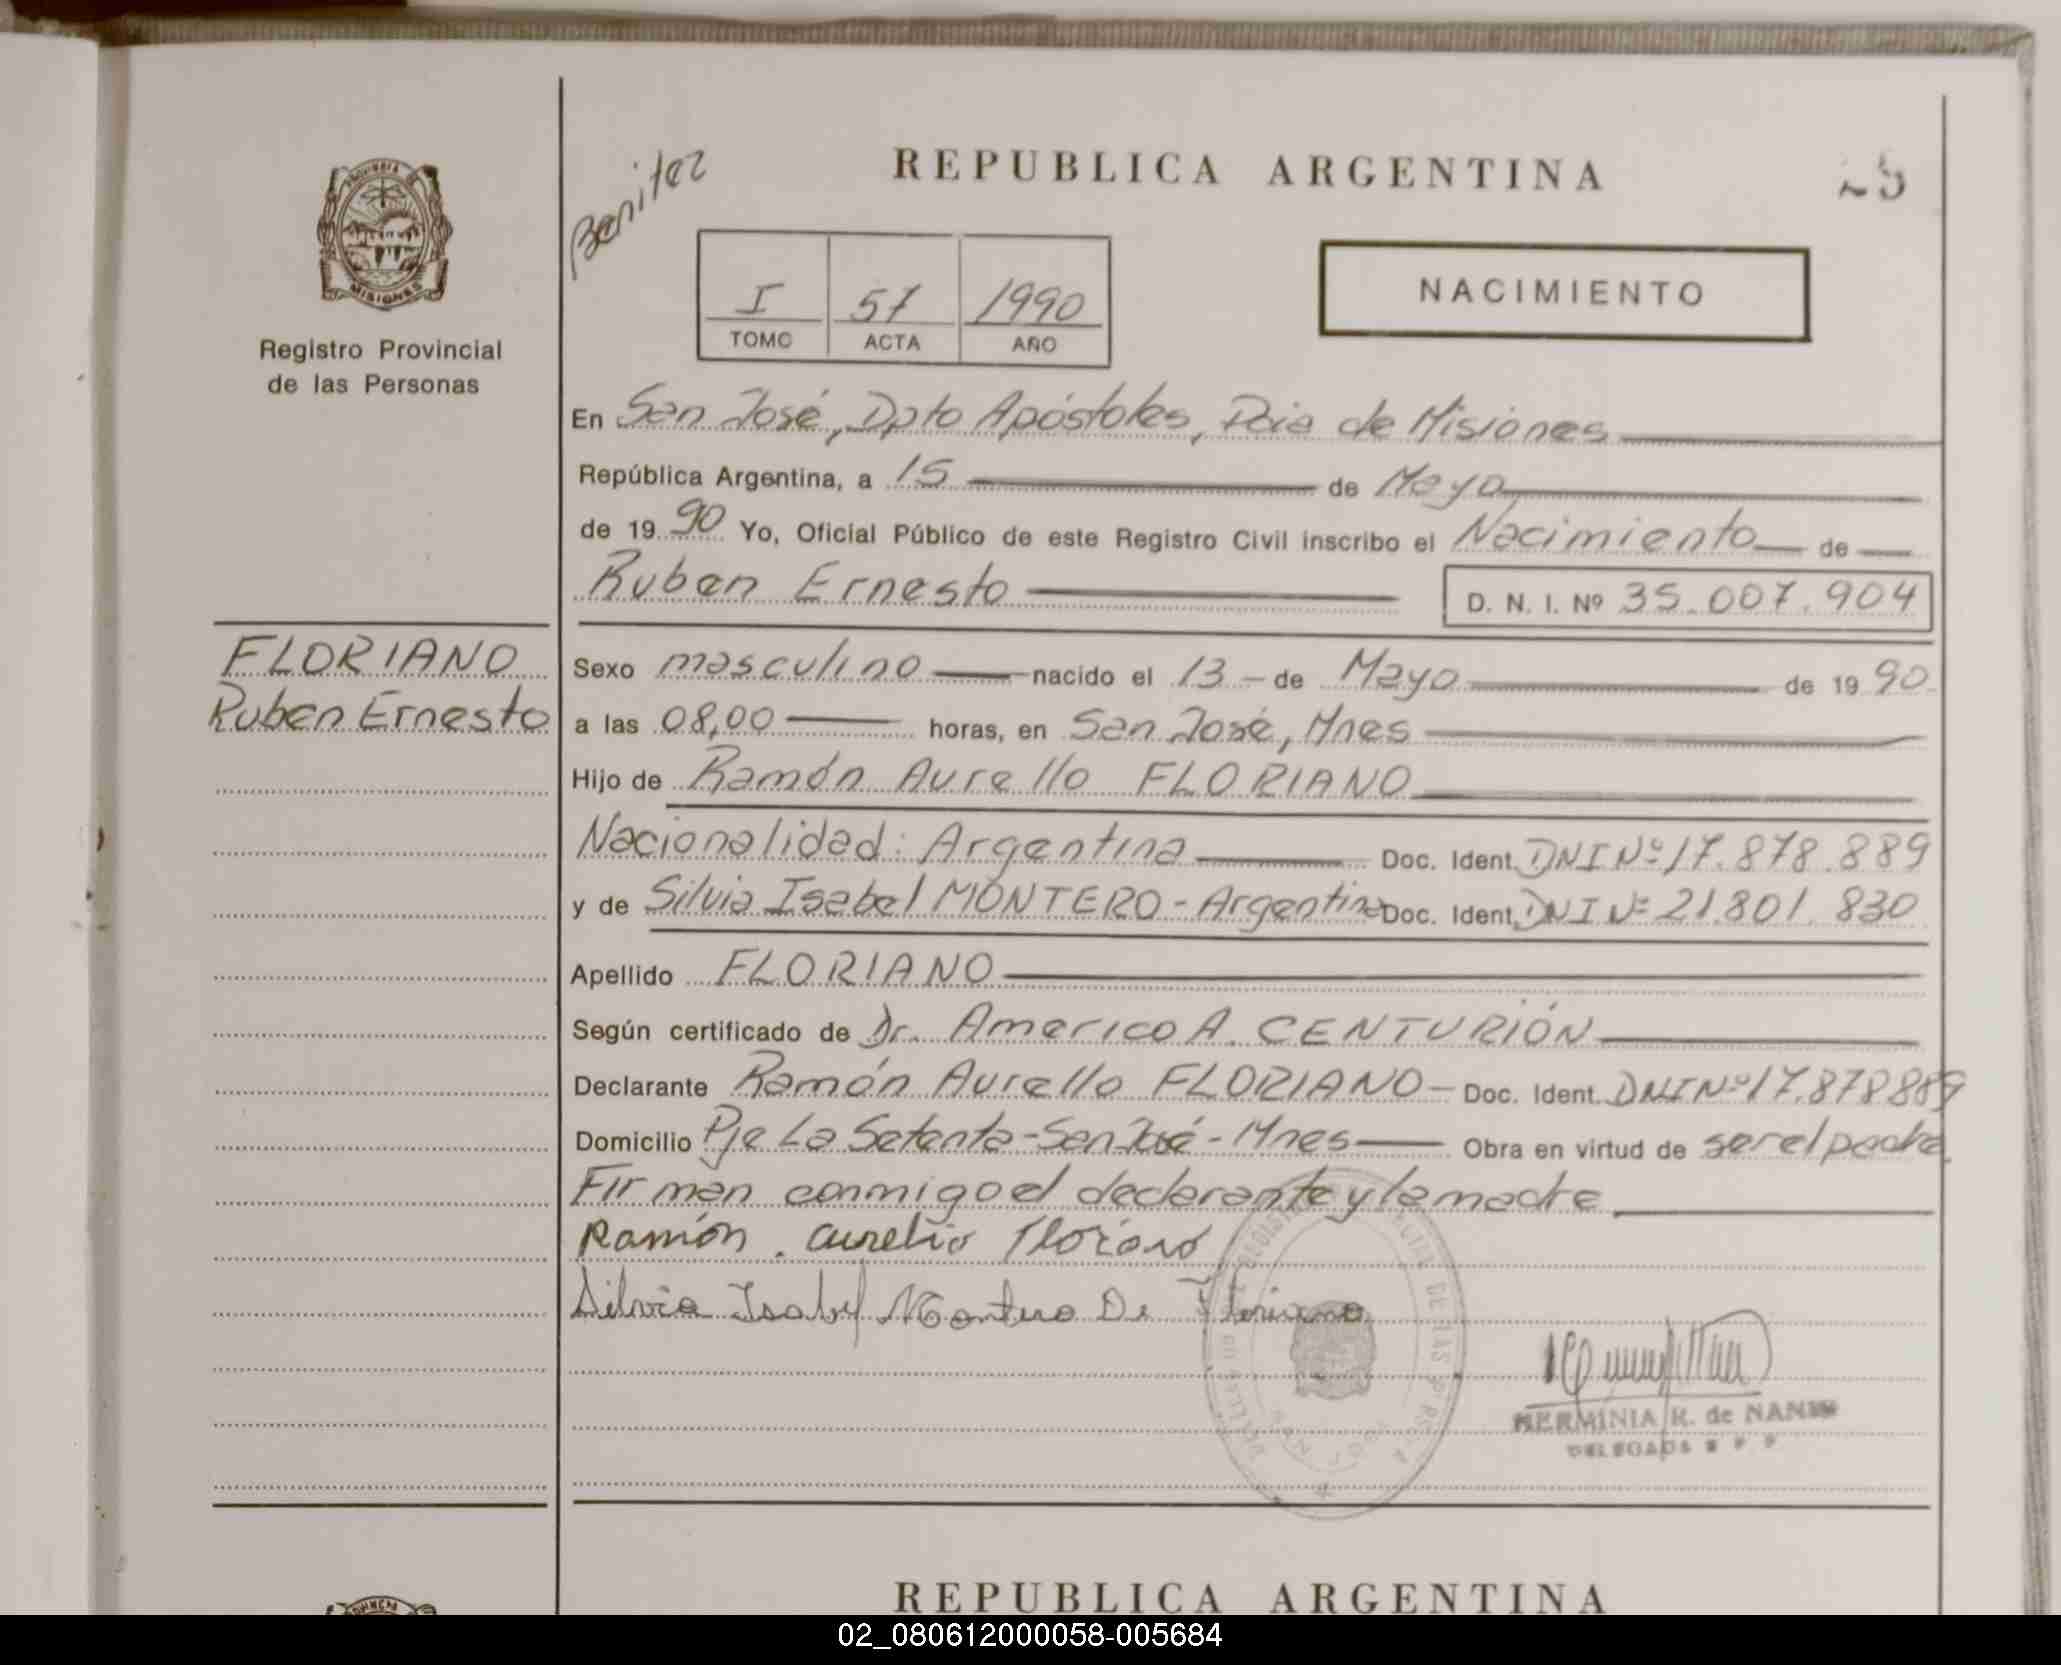 PROVINCIA DE
MISIONES
Registro Provincial
de las Personas
FLORIANO
Ruben Ernesto
Benitez
REPUBLICA ARGENTINA
I 57 1990
TOMO ACTA AÑO
NACIMIENTO
En San José, Dpto Apóstoles, Pcia de Misiones
República Argentina, a 15 de Mayo
de 19 90 Yo, Oficial Público de este Registro Civil inscribo el Nacimiento de
Ruben Ernesto D. N. I. Nº 35.007.904
Sexo masculino nacido el 13 - de Mayo de 19 90
a las 08,00 horas, en San José, Mnes
Hijo de Ramón Aurelio FLORIANO
Nacionalidad: Argentina Doc. Ident. DNI Nº 17.878.889
y de Silvia Isabel MONTERO - Argentina Doc. Ident. DNI Nº 21.801.830
Apellido FLORIANO
Según certificado de Dr. Americo A. CENTURIÓN
Declarante Ramón Aurelio FLORIANO - Doc. Ident. DNI Nº 17.878889
Domicilio Pje La Setenta - San José - Mnes Obra en virtud de ser el padre
Firman conmigo el declarante y la madre
Ramón . Aurelio Floriano
Silvia Isabel Montero De Floriano
HERMINIA R. de NANIN
DELEGADA
REPUBLICA ARGENTINA
02_080612000058-005684